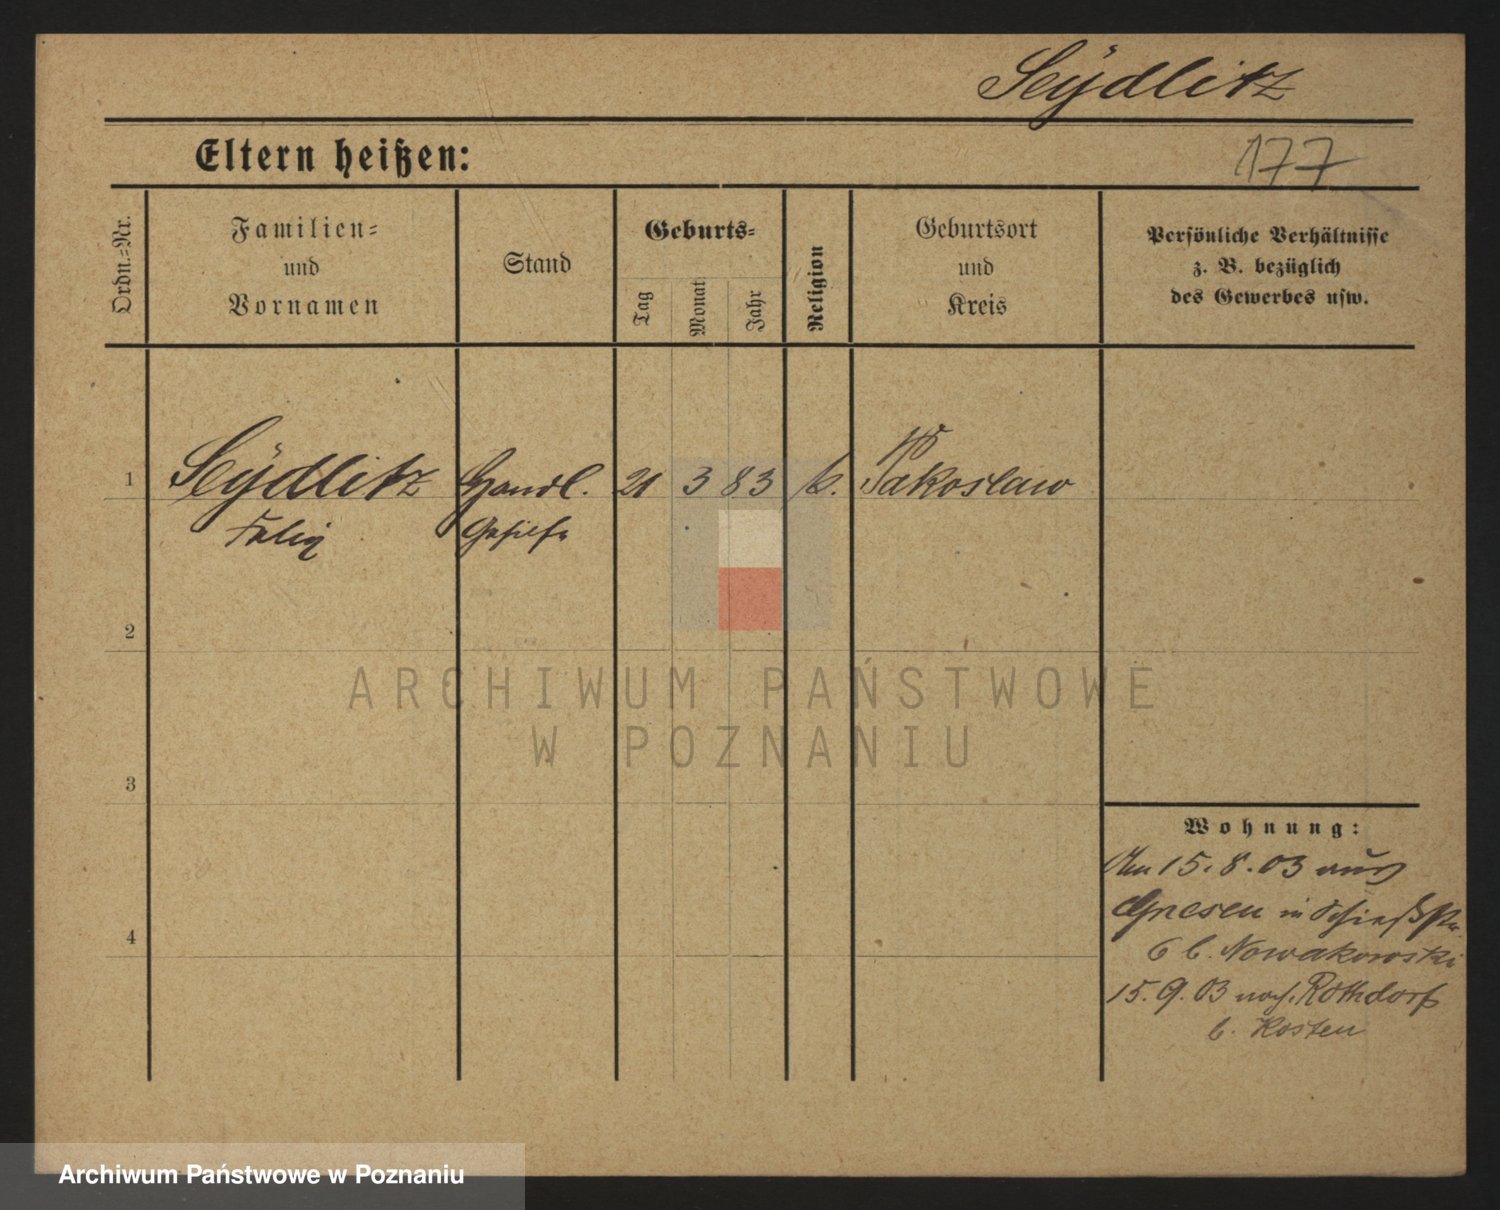 Seÿdlitz
Eltern heißen:
177
Ordn.=Nr.
Familien=
und
Vornamen
Stand
Geburts=
Tag
Monat
Jahr
Religion
Geburtsort
und
Kreis
Persönliche Verhältnisse
z. B. bezüglich
des Gewerbes usw.
1
Seÿdlitz
Handl.
21 3 83
k.
Pakoslaw
Felix
Gehilfe
2
ARCHIWUM PAŃSTWOWE
W POZNANIU
3
Wohnung:
Am 15. 8. 03 aus
Gnesen in Schießstr.
6 b. Nowakowski
15. 9. 03 nach Rothdorf
b. Kosten
4
Archiwum Państwowe w Poznaniu